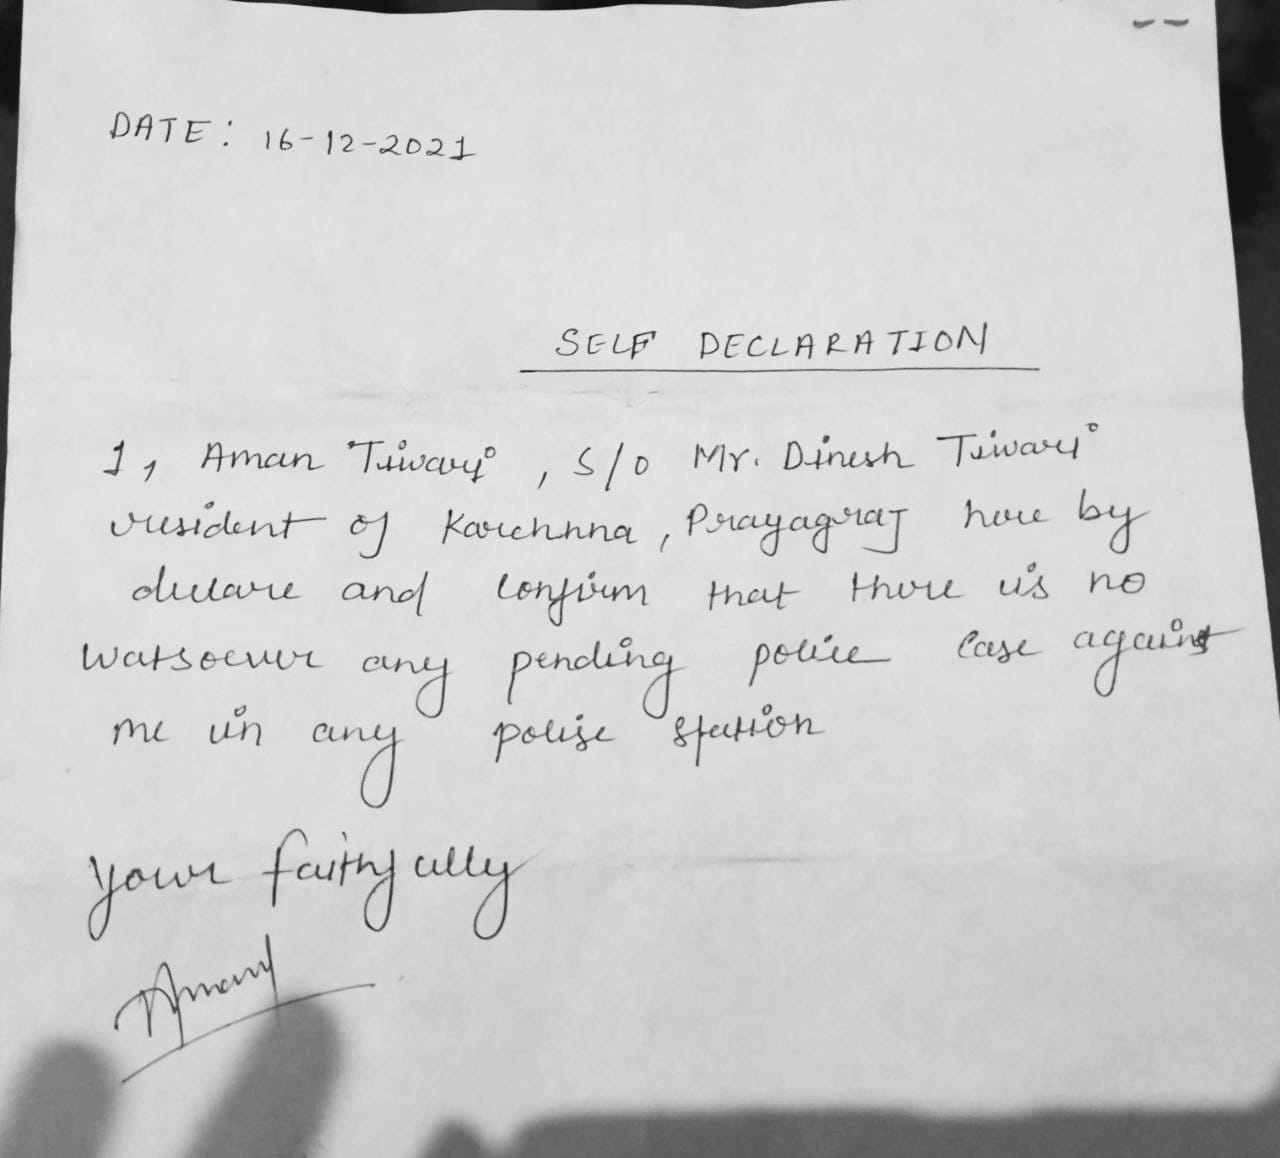 DATE: 16-12-2021
SELF DECLARATION
I, Aman Tiwari, S/o Mr. Dinesh Tiwari
resident of Karchhna, Prayagraj here by
declare and confirm that there is no
watsoever any pending police case against
me in any polise station
your faithfully
Aman